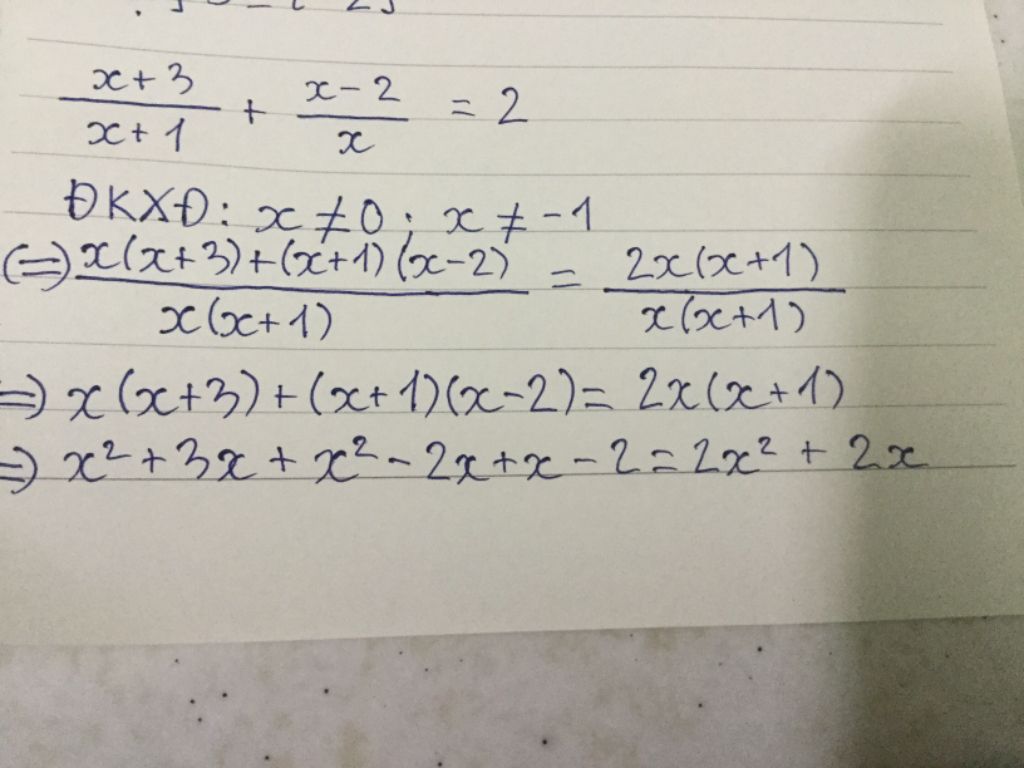 x+3/x+1 + x-2/x = 2
ĐKXĐ: x ≠ 0; x ≠ -1
(=) x(x+3)+(x+1)(x-2)/x(x+1) = 2x(x+1)/x(x+1)
=) x(x+3)+(x+1)(x-2)= 2x(x+1)
=) x²+3x+x²-2x+x-2=2x²+2x